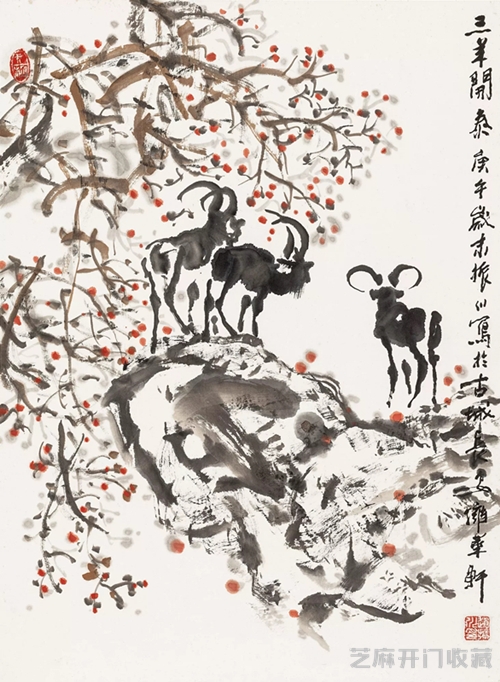 三羊開泰 庚午歲末振川寫於古城長安雍華軒
芝麻开门收藏